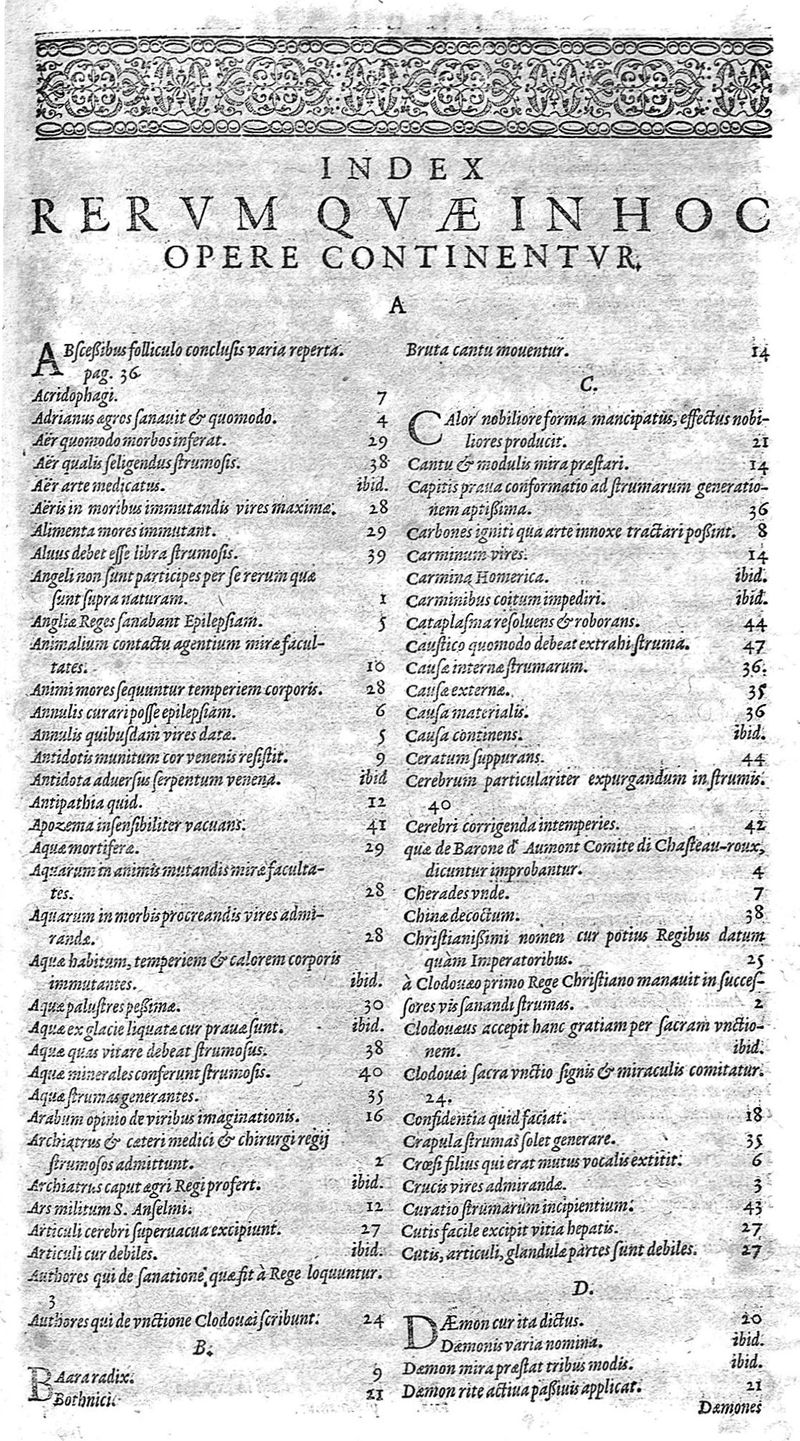 INDEX
RERVM QVÆ IN HOC
OPERE CONTINENTVR.
A
ABscessibus folliculo conclusis varia reperta.
pag. 36
Acridophagi. 7
Adrianus agros sanauit & quomodo. 4
Aër quomodo morbos inferat. 29
Aër qualis seligendus strumosis. 38
Aër arte medicatus. ibid.
Aëris in moribus immutandis vires maximæ. 28
Alimenta mores immutant. 29
Aluus debet esse libra strumosis. 39
Angeli non sunt participes per se rerum quæ
sunt supra naturam. 1
Angliæ Reges sanabant Epilepsiam. 5
Animalium contactu agentium miræ facul-
tates. 10
Animi mores sequuntur temperiem corporis. 28
Annulis curari posse epilepsiam. 6
Annulis quibusdam vires datæ. 5
Antidotis munitum cor venenis resistit. 9
Antidota aduersus serpentum venena. ibid
Antipathia quid. 12
Apozema insensibiliter vacuans. 41
Aquæ mortiferæ. 29
Aquarum in animis mutandis miræ faculta-
tes. 28
Aquarum in morbis procreandis vires admi-
randæ. 28
Aquæ habitum, temperiem & calorem corporis
immutantes. ibid.
Aquæ palustres pessimæ. 30
Aquæ ex glacie liquata cur prauæ sunt. ibid.
Aquæ quas vitare debeat strumosus. 38
Aquæ minerales conferunt strumosis. 40
Aquæ strumas generantes. 35
Arabum opinio de viribus imaginationis. 16
Archiatrus & cæteri medici & chirurgi regij
strumosos admittunt. 2
Archiatrus caput ægri Regi profert. ibid.
Ars militum S. Anselmi. 12
Articuli cerebri superuacua excipiunt. 27
Articuli cur debiles. ibid.
Authores qui de sanatione, quæ fit à Rege loquuntur.
3
Authores qui de vnctione Clodouæi scribunt. 24
B.
BAara radix. 9
Bothnici. 21
Bruta cantu mouentur. 14
C.
CAlor nobiliore forma mancipatus, effectus nobi-
liores producit. 21
Cantu & modulis mira præstari. 14
Capitis praua conformatio ad strumarum generatio-
nem aptissima. 36
Carbones igniti qua arte innoxe tractari possint. 8
Carminum vires. 14
Carmina Homerica. ibid.
Carminibus coitum impediri. ibid.
Cataplasma resoluens & roborans. 44
Caustico quomodo debeat extrahi struma. 47
Causæ internæ strumarum. 36.
Causæ externæ. 35
Causa materialis. 36
Causa continens. ibid.
Ceratum suppurans. 44
Cerebrum particulariter expurgandum in strumis.
40
Cerebri corrigenda intemperies. 42
quæ de Barone d' Aumont Comite di Chasteau-roux,
dicuntur improbantur. 4
Cherades vnde. 7
Chinæ decoctum. 38
Christianissimi nomen cur potius Regibus datum
quàm Imperatoribus. 25
à Clodouæo primo Rege Christiano manauit in succes-
sores vis sanandi strumas. 2
Clodouæus accepit hanc gratiam per sacram vnctio-
nem. ibid.
Clodouæi sacra vnctio signis & miraculis comitatur.
24.
Confidentia quid faciat. 18
Crapula strumas solet generare. 35
Crœsi filius qui erat mutus vocalis extitit. 6
Crucis vires admirandæ. 3
Curatio strumarum incipientium. 43
Cutis facile excipit vitia hepatis. 27
Cutis, articuli, glandulæ partes sunt debiles. 27
D.
DÆmon cur ita dictus. 20
Dæmonis varia nomina. ibid.
Dæmon mira præstat tribus modis. ibid.
Dæmon rite actiua passiuis applicat. 21
Dæmones